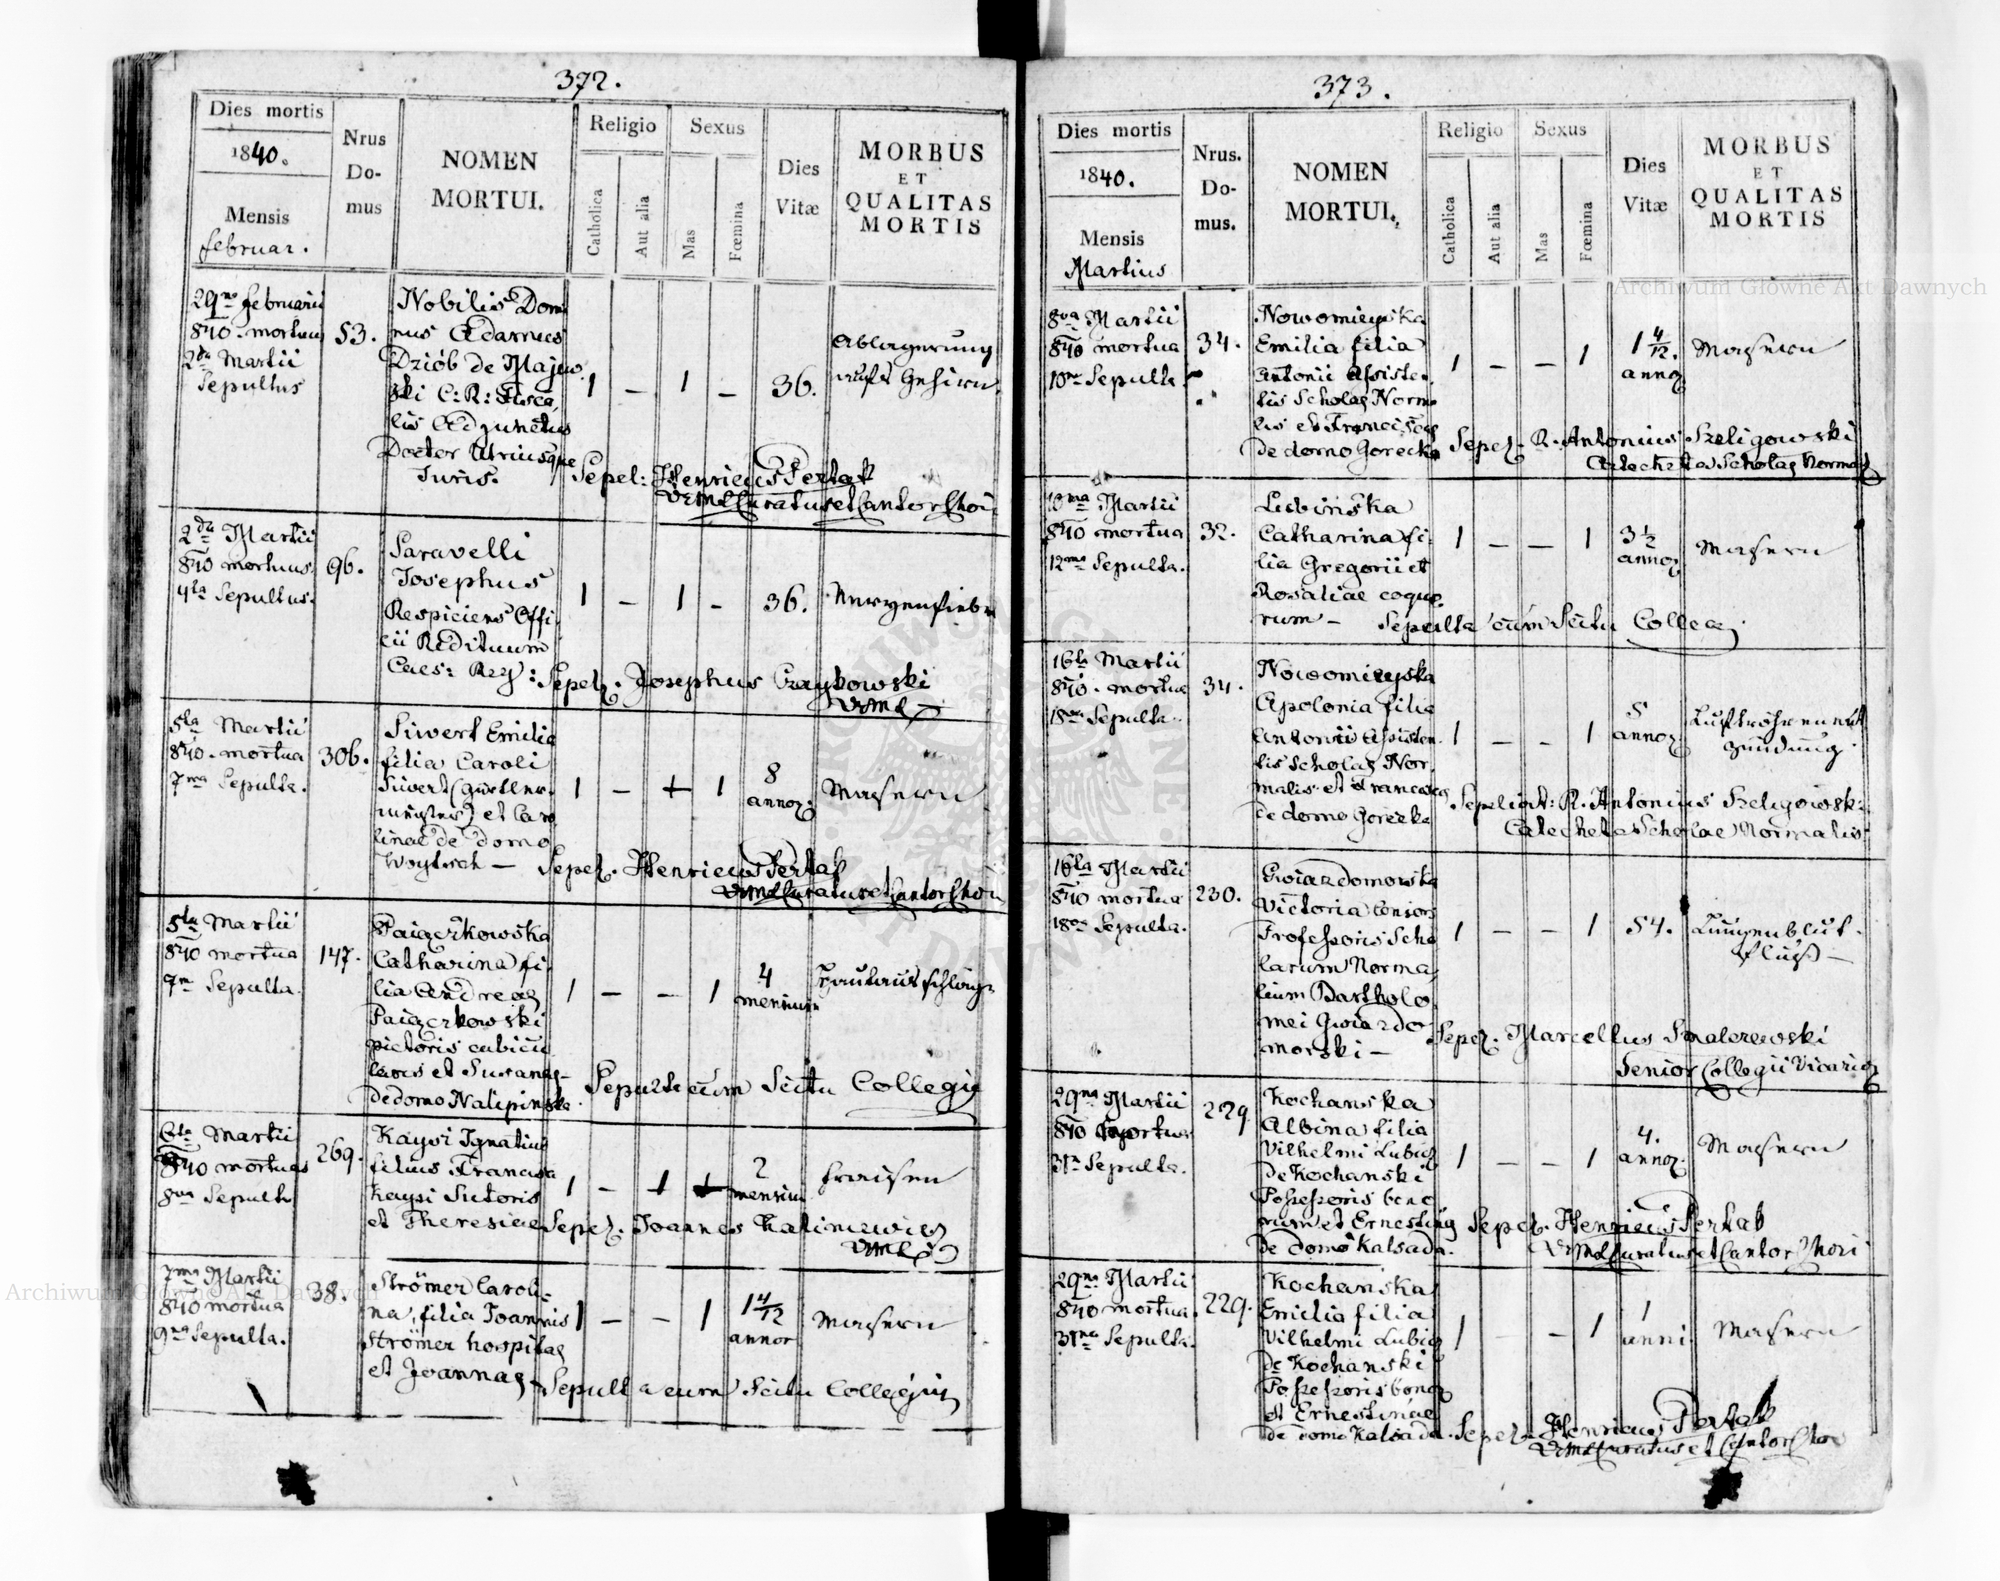 372.
Dies mortis
1840.
Mensis
februar.
Nrus
Do-
mus
NOMEN
MORTUI.
Religio
Catholica
Aut alia
Sexus
Mas
Fœmina
Dies
Vitæ
MORBUS
ET
QUALITAS
MORTIS
29na Februarii
840 mortuus
2da Martii
Sepultus
53.
Nobilis Domi
nus Adamus
Dziób de Majew
ski C: R: Fisca
lis Adjunctus
Doctor Utriusque
Juris.
1 — 1 — 36.
Ablagerung
aufs Gehirn
Sepel: Henricus Pertak
Curatus et Cantor Chori
2da Martii
840 mortuus
4ta Sepultus.
96.
Saravelli
Josephus
Respiciens Offi
cii Redituum
Caes: Reg:
1 — 1 — 36.
Nervenfieber
Sepel. Josephus
5ta Martii
840 mortua
7ma Sepulta.
306.
Siwert Emilia
filia Caroli
Siwert (Gürtler-
meister) et Caro
linae de domo
Woytech —
1 — + 1
8
annor.
Masern
Sepel. Henricus Pertak
Curatus et Cantor Chori
5ta Martii
840 mortua
7ma Sepulta.
147.
Catharina fi-
lia Andreae
pictoris cubicu
laris et Susannae
de domo Nalepinska.
1 — — 1
4
mensium
Hautausschlag
Sepulta cum Scitu Collegii
6ta Martii
840 mortuus
8va Sepultus
269.
Kaysi Ignatius
filius Francisci
Kaysi Sutoris
et Theresiae
1 — +
2
mensium
Fraisen
Sepel. Joannes Kaliniewicz
7ma Martii
840 mortua
9na Sepulta.
38.
Strömer Caroli-
na, filia Joannis
Strömer hospitae
et Joannae
1 — — 1
1 4/12
annor
Masern
Sepulta cum Scitu Collegii
373.
Dies mortis
1840.
Mensis
Martius
Nrus.
Do-
mus.
NOMEN
MORTUI.
Religio
Catholica
Aut alia
Sexus
Mas
Fœmina
Dies
Vitæ
MORBUS
ET
QUALITAS
MORTIS
8va Martii
840 mortua
10ma Sepulta
34.
Nowomieyska
Emilia filia
Antonii Assisten
tis Scholae Norma
lis et Franciscae
de domo Gorecka
1 — — 1
1 4/12.
annor
Masern
Sepel. R. Antonius Szeligowski
Catecheta Scholae Normal
10ma Martii
840 mortua
12ma Sepulta.
32.
Lubinska
Catharina fi-
lia Gregorii et
Rosaliae coquo
rum —
1 — — 1
3 1/2
annor
Masern
Sepulta cum Scitu Collegii
16ta Martii
840 mortua
18va Sepulta.
34.
Nowomieyska
Apolonia filia
Antonii Assisten.
tis Scholae Nor
malis et Franciscae
de domo Gorecka
1 — — 1
5
annor
Luftröhrenent
zündung.
Sepelivit: R. Antonius Szeligowski
Catecheta Scholae Normalis
16ta Martii
840 mortua
18va Sepulta.
230.
Gwiazdomorska
Victoria consors
Professoris Scho
larum Norma
lium Bartholo
mei Gwiazdo
morski —
1 — — 1 54.
Lungenblut-
fluß —
Sepel. Marcellus Smalczewski
Senior Collegii Vicarior
29na Martii
840 mortua
31ma Sepulta.
229
Kochanska
Albina filia
Vilhelmi Lubicz
de Kochanski
Possessoris bono
rum et Ernestinae
de domo Kalsada.
1 — — 1
4.
annor.
Masern
Sepel. Henricus Pertak
Curatus et Cantor Chori
29na Martii
840 mortua.
31ma Sepulta.
229.
Kochanska
Emilia filia
Vilhelmi Lubicz
de Kochanski
Possessoris bonor
et Ernestinae
de domo Kalsada.
1 — — 1
1
anni
Masern
Sepel. Henricus Pertak
Curatus et Cantor Chori
Archiwum Główne Akt Dawnych
Archiwum Główne Akt Dawnych